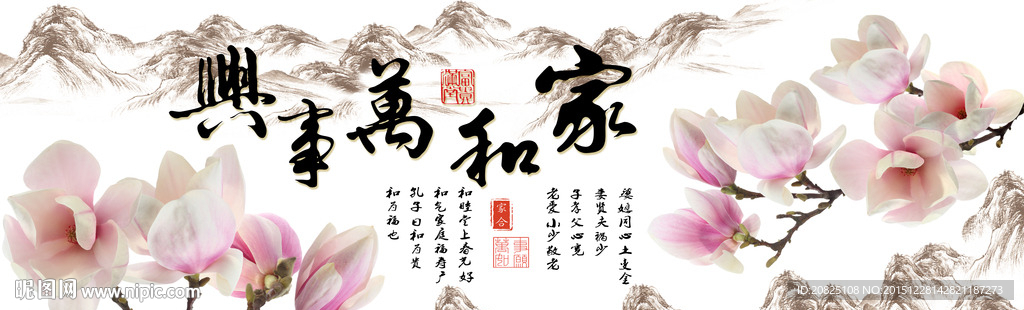 家和萬事興
富貴
婆媳同心土变金
妻贤夫祸少
子孝父心宽
老爱小少敬老
家合
萬事如願
和睦堂上春光好
和气家庭福寿户
孔子曰和为贵
和为福也
昵图网 www.nipic.com
ID:20825108 NO:20151228142821187273